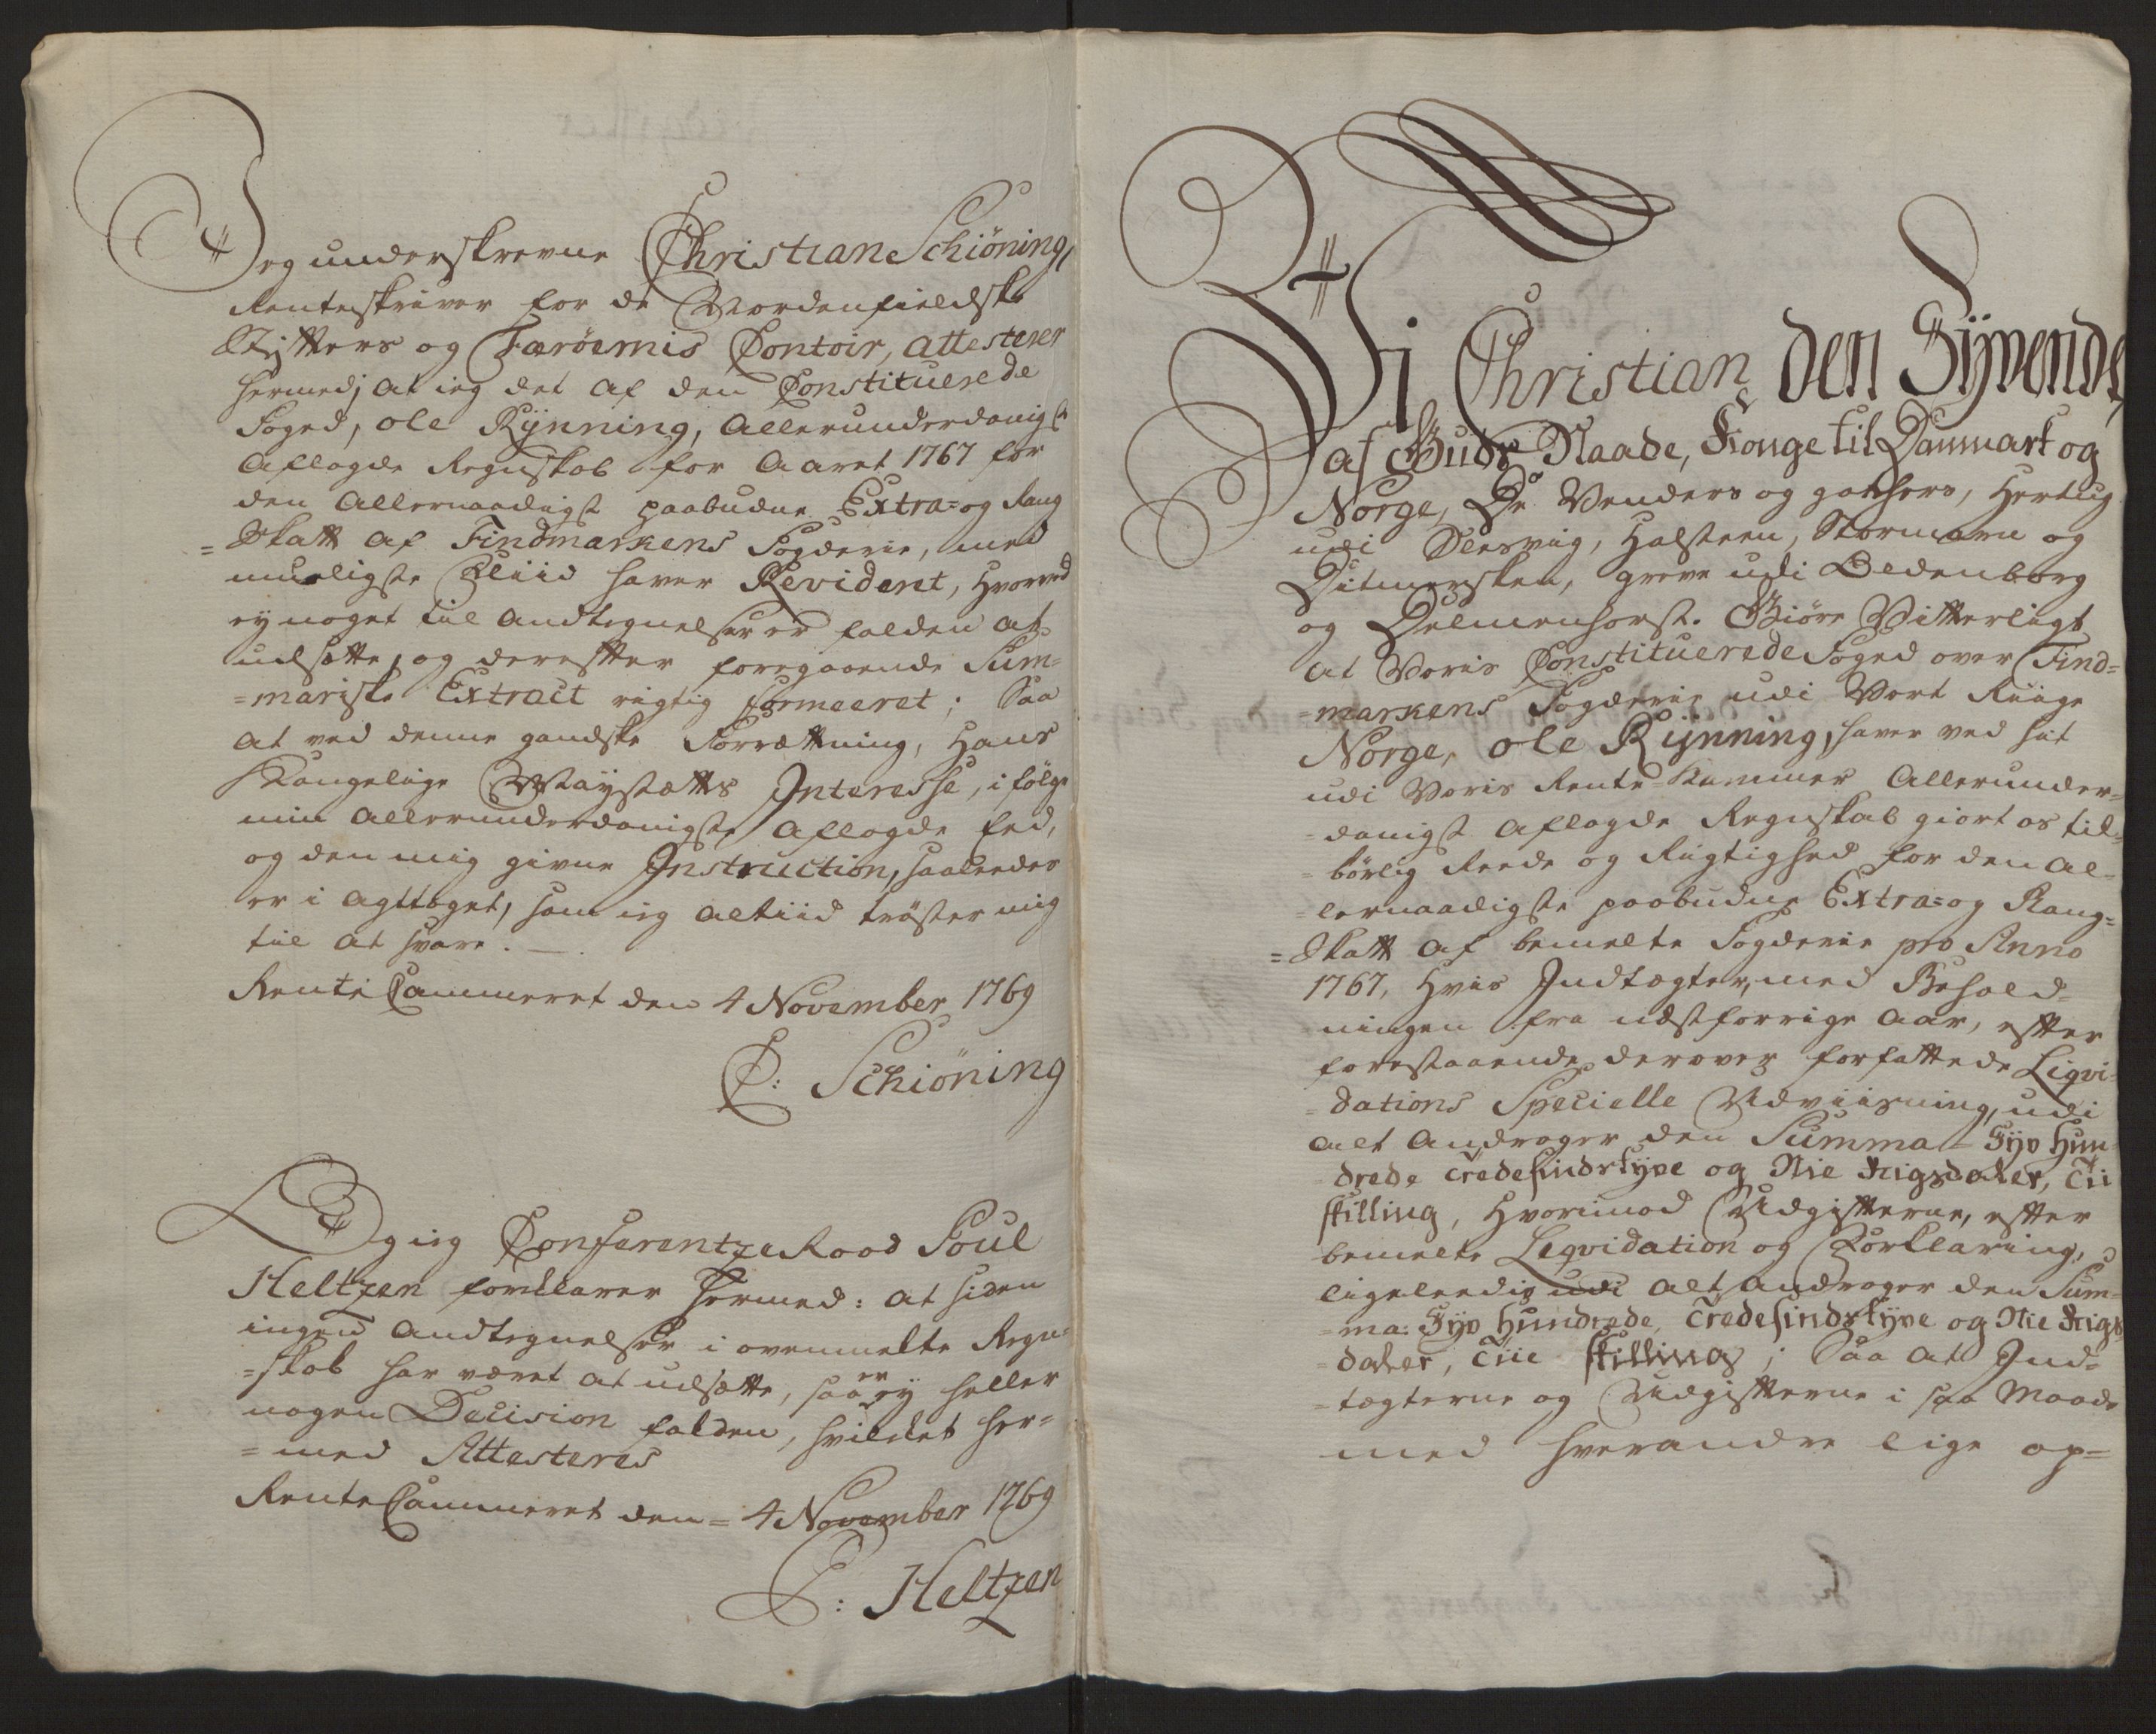 Jeg underskrevne Christian Schiöning,
Renteskriver for de Nordenfieldske
Stifters og Færöernis Contoir, attesterer
hermed, at ieg det af den Constituerede
Foged, Ole Rÿnning, Allerunderdanigst
Aflagde Regnskab for Aaret 1767 for
den Allernaadigst paabudne Extra= og Rang
=Skatt af Findmarkens Fogderie, med
mueligste Fliid haver Revideret, hvorved
ey noget til Andtegnelser er falden at
udsætte, og derefter foregaaende Sum=
=mariske Extract rigtig formeeret; Saa
at ved denne gandske Forrættning, Hans
Kongelige Mayestætts Interesse, i følge
min Allerunderdanigste Aflagde Eed,
og den mig givne Instruction, saaleedes
er i agttaget, som ieg altiid trøster mig
til at svare.
Rente Cammeret den 4 November 1769
C: Schiöning
Og ieg Conferentze Raad Poul
Heltzen forklarer hermed: at siden
ingen Andtegnelser i ovenmelte Regn=
=skab har været at udsætte, saa er ey heller
nogen Decision falden, hvilket her=
=med Attesteres
Rente Cammeret den = 4 November 1769
P: Heltzen
Vi Christian den Sÿvende,
af Guds Naade, Konge til Danmark og
Norge, De Venders og Gothers, Hertug
udi Slesvig, Holsteen, Stormarn og
Ditmersken, Greve udi Oldenborg
og Delmenhorst. Giøre Vitterligt
at Voris Constituerede Foged over Find=
=markens Fogderie udi Vort Riige
Norge, Ole Rÿnning, haver ved sit
udi Voris Rente-Kammer Allerunder=
=danigst Aflagde Regnskab giort os til=
=børlig Reede og Rigtighed for den Al=
=lernaadigste paabudne Extra= og Rang=
=Skatt af bemelte Fogderie pro Anno
1767, Hvis Indtægter, med Behold=
=ningen fra næstforrige Aar, efter
forestaaende derover forfattede Liqvi=
=dations Specielle Udviisning, udi
alt Andrager den Summa – Sÿv Hun
drede Tredesindstÿve og Nie Rigsdaler, Tii
skilling, Hvorimod Udgifterne, efter
bemelte Leqvidation og Forklaring,
ligeleedis udi alt Andrager den Sum=
=ma: Sÿv Hundrede, Tredesindstÿve og Nie Rigs
daler, Tiie skilling; Saa at Ind=
=tægterne og Udgifterne i saa Maade
med hverandre lige op=